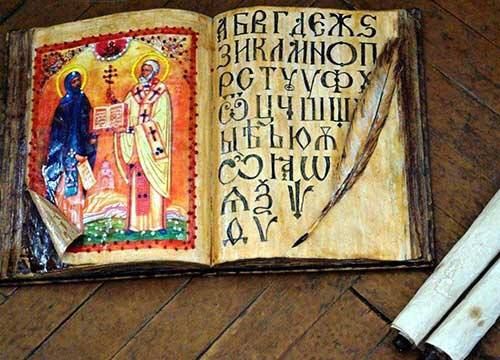 АБВГДЕЖЅ
ЗИКЛМНОП
РСТУУФХ
ѾЦЧШЩ
ЫѢЬЮѦ
ѼꙖѠ
ѪѮѰ
ѲѴ